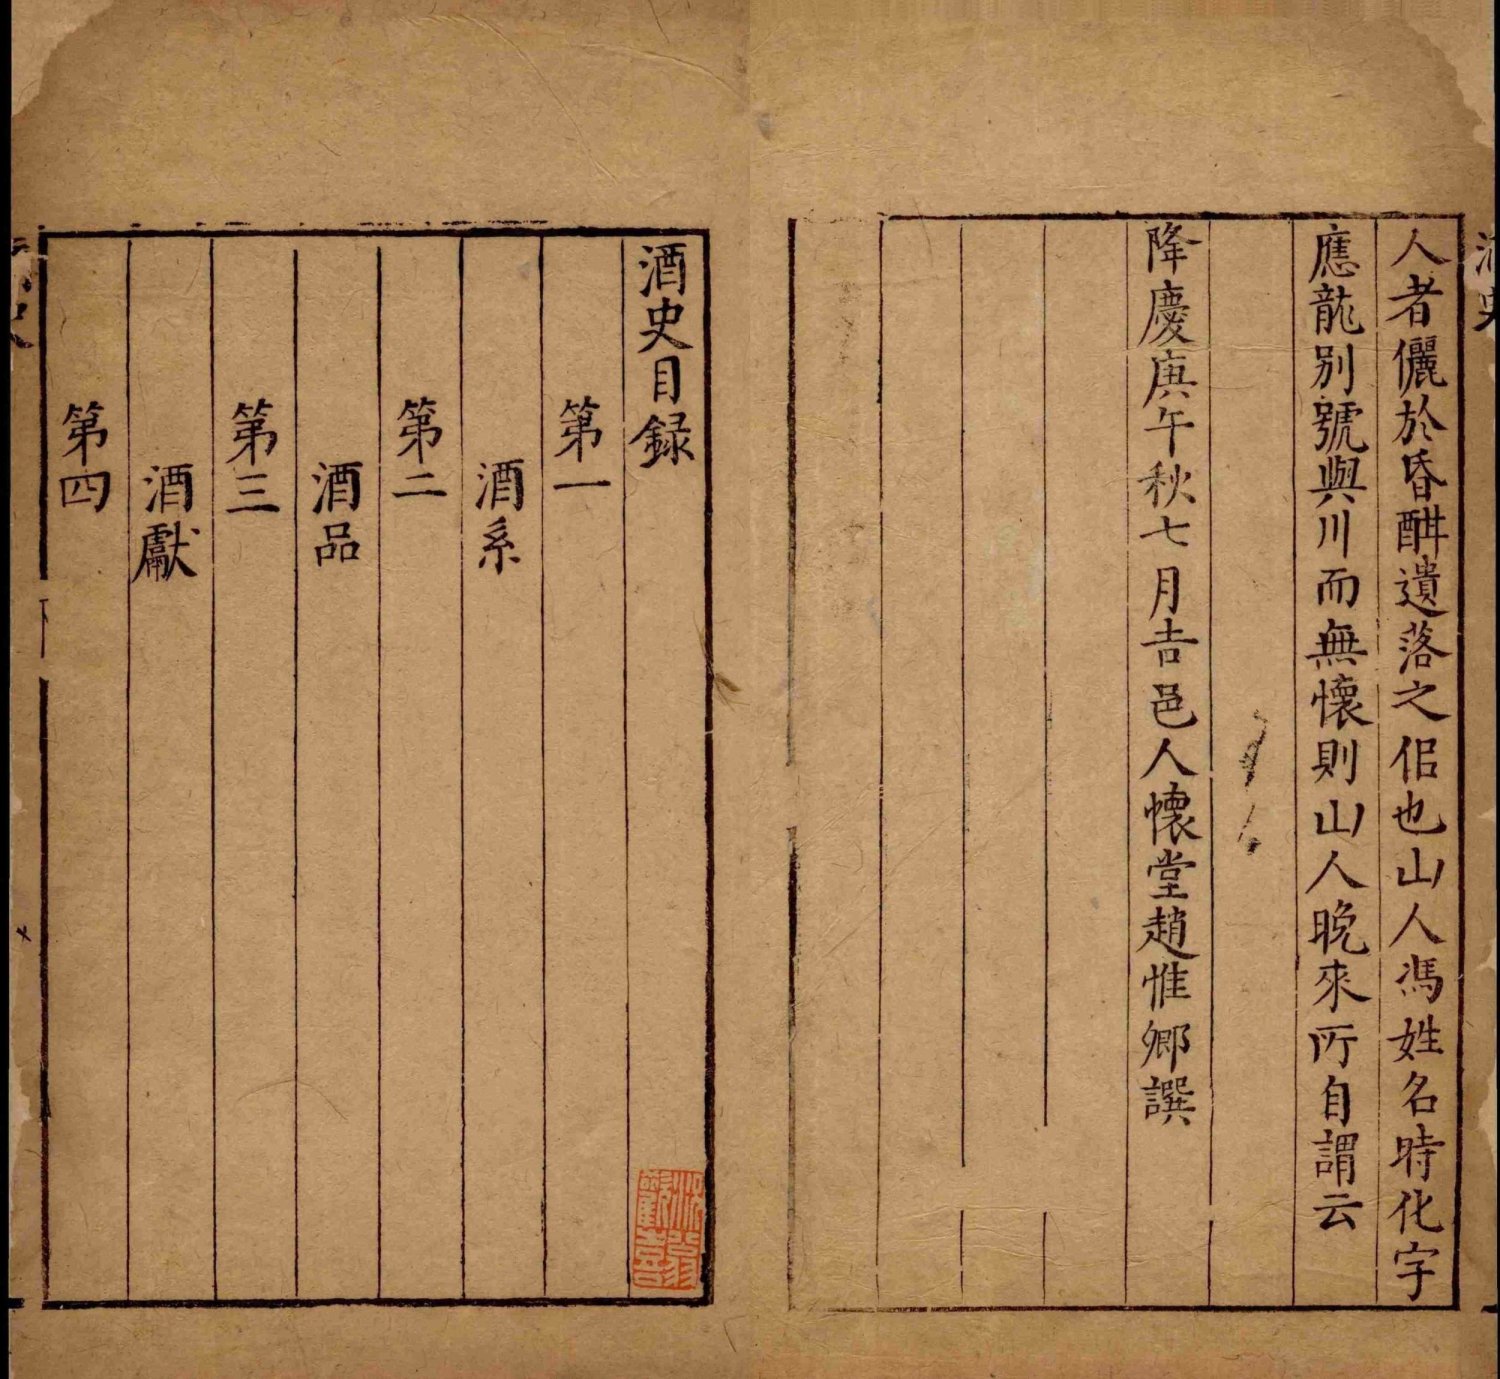 酒史
人者儷於昏酣遺落之佀也山人馮姓名時化字
應龍別號與川而無懷則山人晚來所自謂云
降慶庚午秋七月吉邑人懷堂趙惟卿撰
酒史目錄
第一
酒系
第二
酒品
第三
酒獻
第四